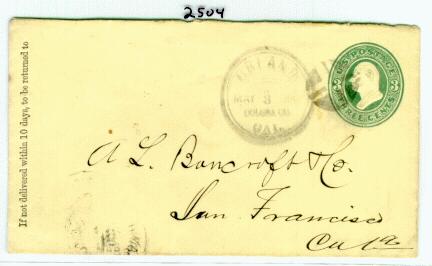 2504
If not delivered within 10 days, to be returned to
ORLAND
MAY 3
COLUSA CO.
CAL.
U.S. POSTAGE
THREE CENTS
A L. Bancroft & Co.
San Francisco